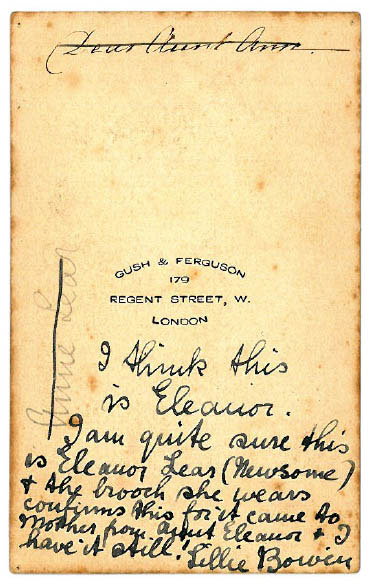 Dear Aunt Ann.
Anne Lear
GUSH & FERGUSON
179
REGENT STREET, W.
LONDON
I think this
is Eleanor.
I am quite sure this
is Eleanor Lear (Newsome)
& the brooch she wears
confirms this for it came to
Mother from Aunt Eleanor & I
have it still! Lillie Bowen